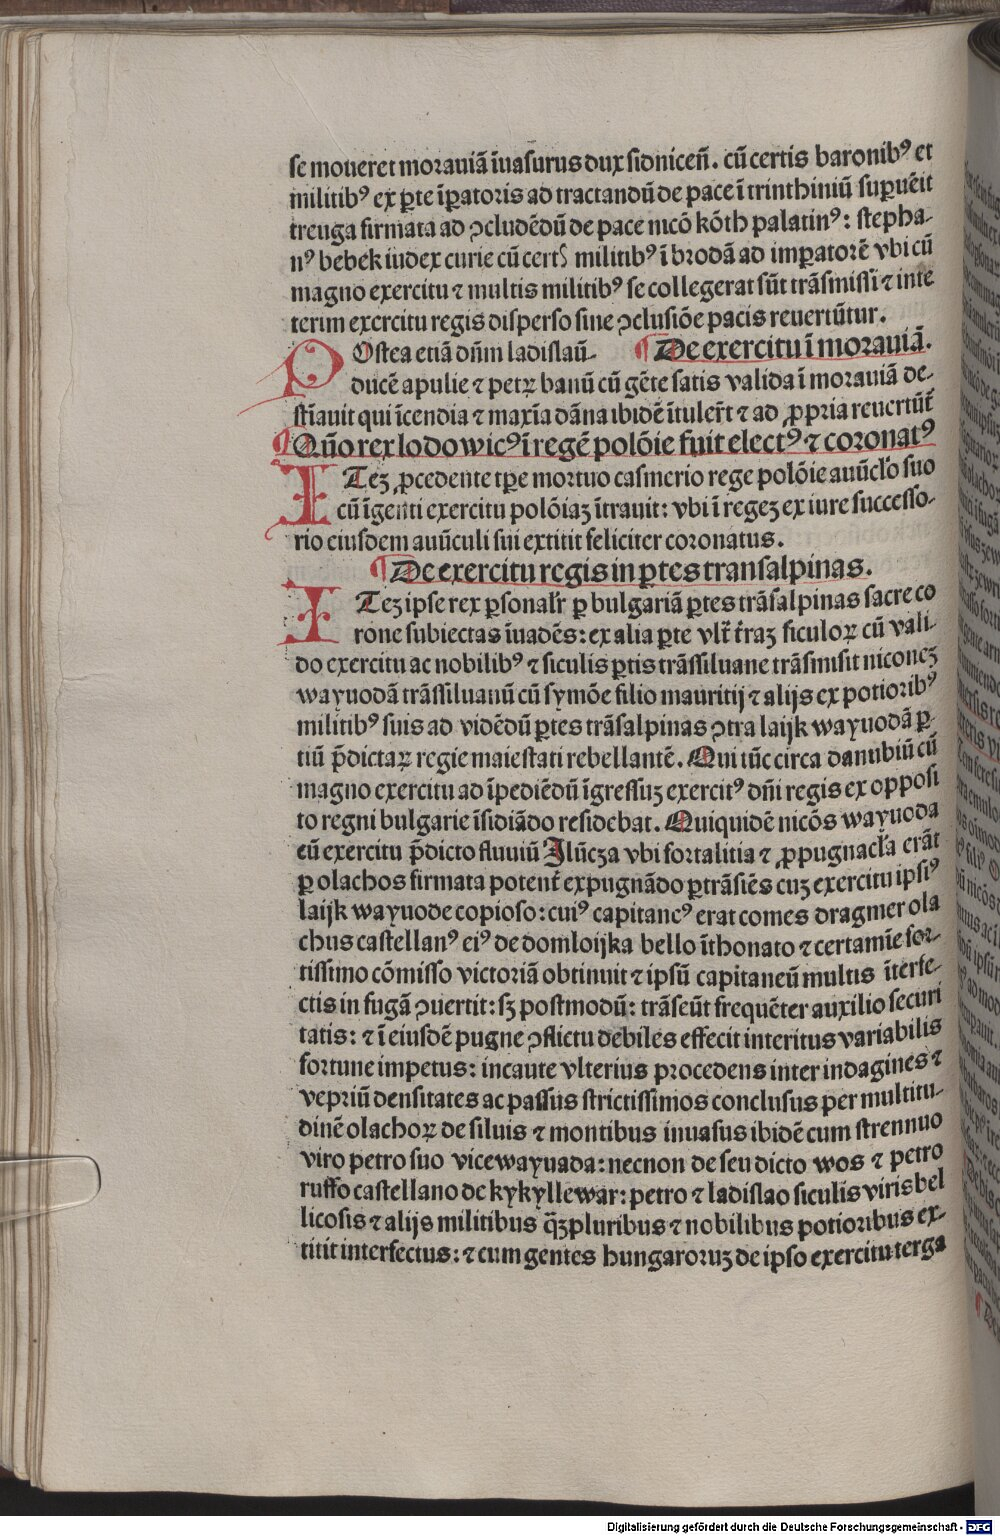 se moueret morauiã ĩuasurus dux sidniceñ. cũ certis baronibꝰ et
militibꝰ ex ꝑte ĩꝑatoris ad tractandũ de pace ĩ trinthiniũ suꝑuẽit
treuga firmata ad ꝯcludẽdũ de pace nicõ kõth palatinꝰ: stepha-
nꝰ bebek iudex curie cũ certꝭ militibꝰ ĩ brodã ad imꝑatorẽ vbi cũ
magno exercitu ⁊ multis militibꝰ se collegerat sũt trãsmissi ⁊ inte
terim exercitu regis disperso sine ꝯclusiõe pacis reuertũtur.
POstea etiã dñm ladislaũ ¶ De exercitu ĩ morauiã.
ducẽ apulie ⁊ petꝝ banũ cũ gẽte satis valida ĩ morauiã de-
stĩauit qui ĩcendia ⁊ maxĩa dãna ibidẽ ĩtuler̃t ⁊ ad ꝓpria reuertũt̃
¶ Qũo rex lodowicꝰ ĩ regẽ polõie fuit electꝰ ⁊ coronatꝰ
ITeꝫ ꝓcedente tꝑe mortuo casmerio rege polõie auũcl̃o suo
cũ ĩgenti exercitu polõiaꝫ ĩtrauit: vbi ĩ regeꝫ ex iure successo-
rio eiusdem auũculi sui extitit feliciter coronatus.
¶ De exercitu regis in ꝑtes transalpinas.
ITeꝫ ipse rex ꝑsonal̃r ꝑ bulgariã ꝑtes trãsalpinas sacre co
rone subiectas ĩuadẽs: ex alia ꝑte vlt̃ t̃raꝫ siculoꝝ cũ vali-
do exercitu ac nobilibꝰ ⁊ siculis ꝑtis trãssiluane trãsmisit niconeꝫ
wayuodã trãssiluanũ cũ symõe filio mauritij ⁊ alijs ex potioribꝰ
militibꝰ suis ad vidẽdũ ꝑtes trãsalpinas ꝯtra laijk wayuodã ꝑ-
tiũ p̃dictaꝝ regie maiestati rebellantẽ. Qui tũc circa danubiũ cũ
magno exercitu ad ĩpediẽdũ ĩgressuꝫ exercitꝰ dñi regis ex opposi
to regni bulgarie ĩsidiãdo residebat. Quiquidẽ nicõs wayuoda
cũ exercitu p̃dicto fluuiũ Jlũcza vbi fortalitia ⁊ ꝓpugnacl̃a erãt
ꝑ olachos firmata potent̃ expugnãdo ꝑtrãsiẽs cuꝫ exercitu ipsiꝰ
laijk wayuode copioso: cuiꝰ capitaneꝰ erat comes dragmer ola
chus castellanꝰ eiꝰ de domloijka bello ĩthonato ⁊ certamĩe for-
tissimo cõmisso victoriã obtinuit ⁊ ipsũ capitaneũ multis ĩterfe-
ctis in fugã ꝯuertit: sꝫ postmodũ: trãseũt frequẽter auxilio securi
tatis: ⁊ ĩ eiusdẽ pugne ꝯflictu debiles effecit interitus variabilis
fortune impetus: incaute vlterius procedens inter indagines ⁊
vepriũ densitates ac passus strictissimos conclusus per multitu-
dinẽ olachoꝝ de siluis ⁊ montibus inuasus ibidẽ cum strennuo
viro petro suo vicewayuada: necnon deseu dicto wos ⁊ petro
ruffo castellano de kykyllewar: petro ⁊ ladislao siculis viris bel
licosis ⁊ alijs militibus q̃ꝫpluribus ⁊ nobilibus potioribus ex-
titit interfectus: ⁊ cum gentes hungaroruꝫ de ipso exercitu terga
Digitalisierung gefördert durch die Deutsche Forschungsgemeinschaft - DFG